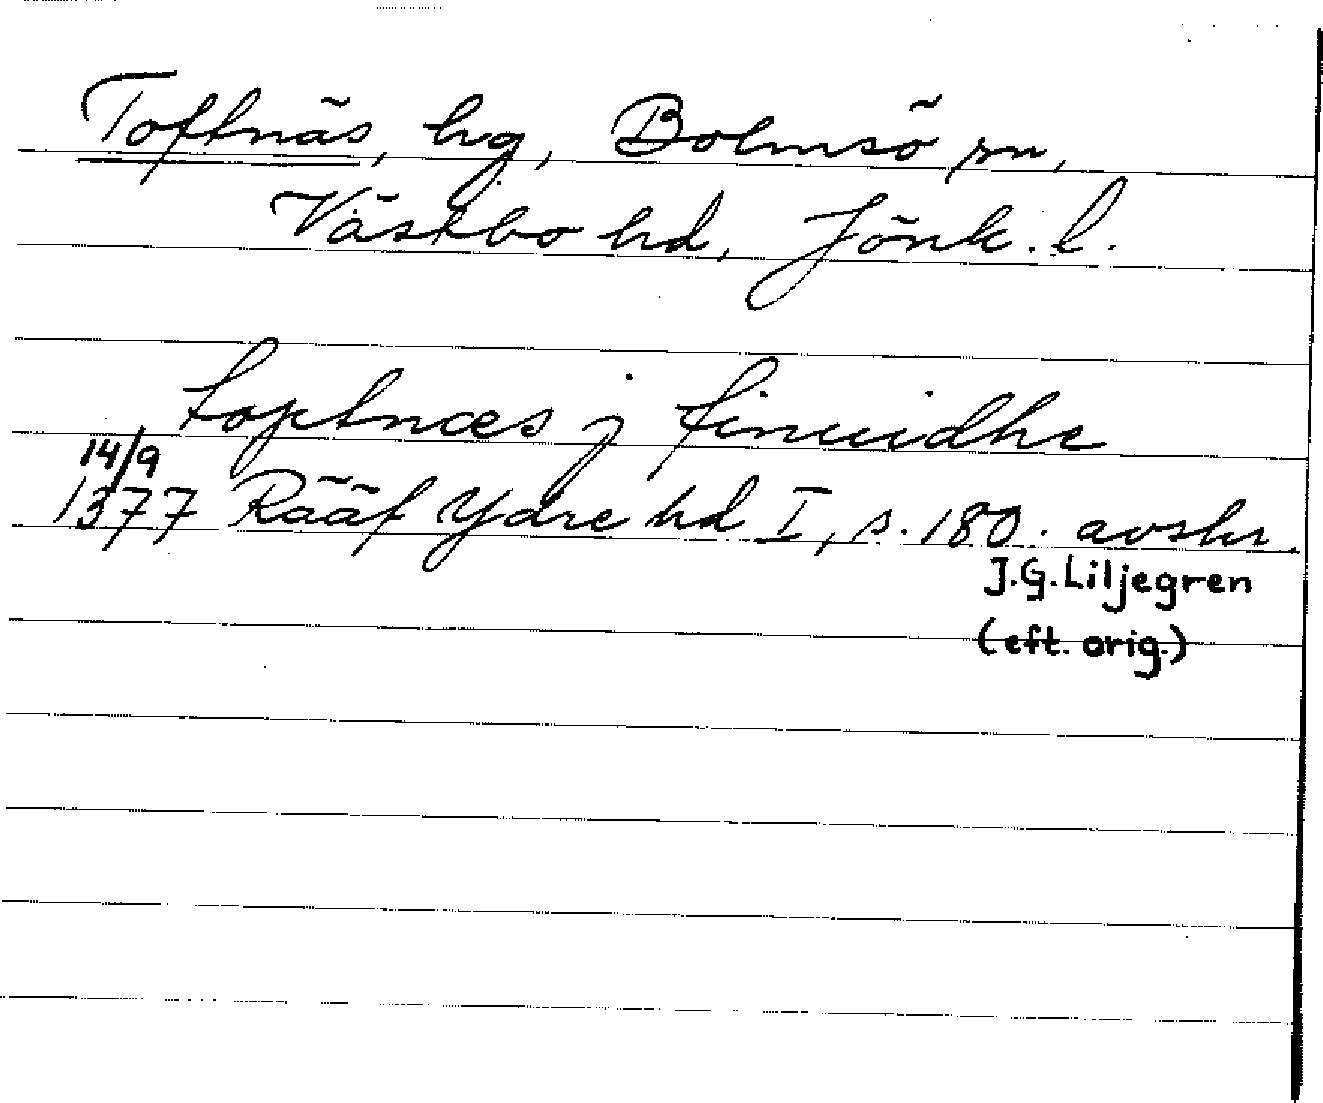 Toftnäs, hg, Bolmsö sn,
Västbo hd, Jönk. l.
toptnæs j finuidhe
14/9
1377 Rääf Ydre hd I, s. 180. avskr.
J.G. Liljegren
(eft. orig.)